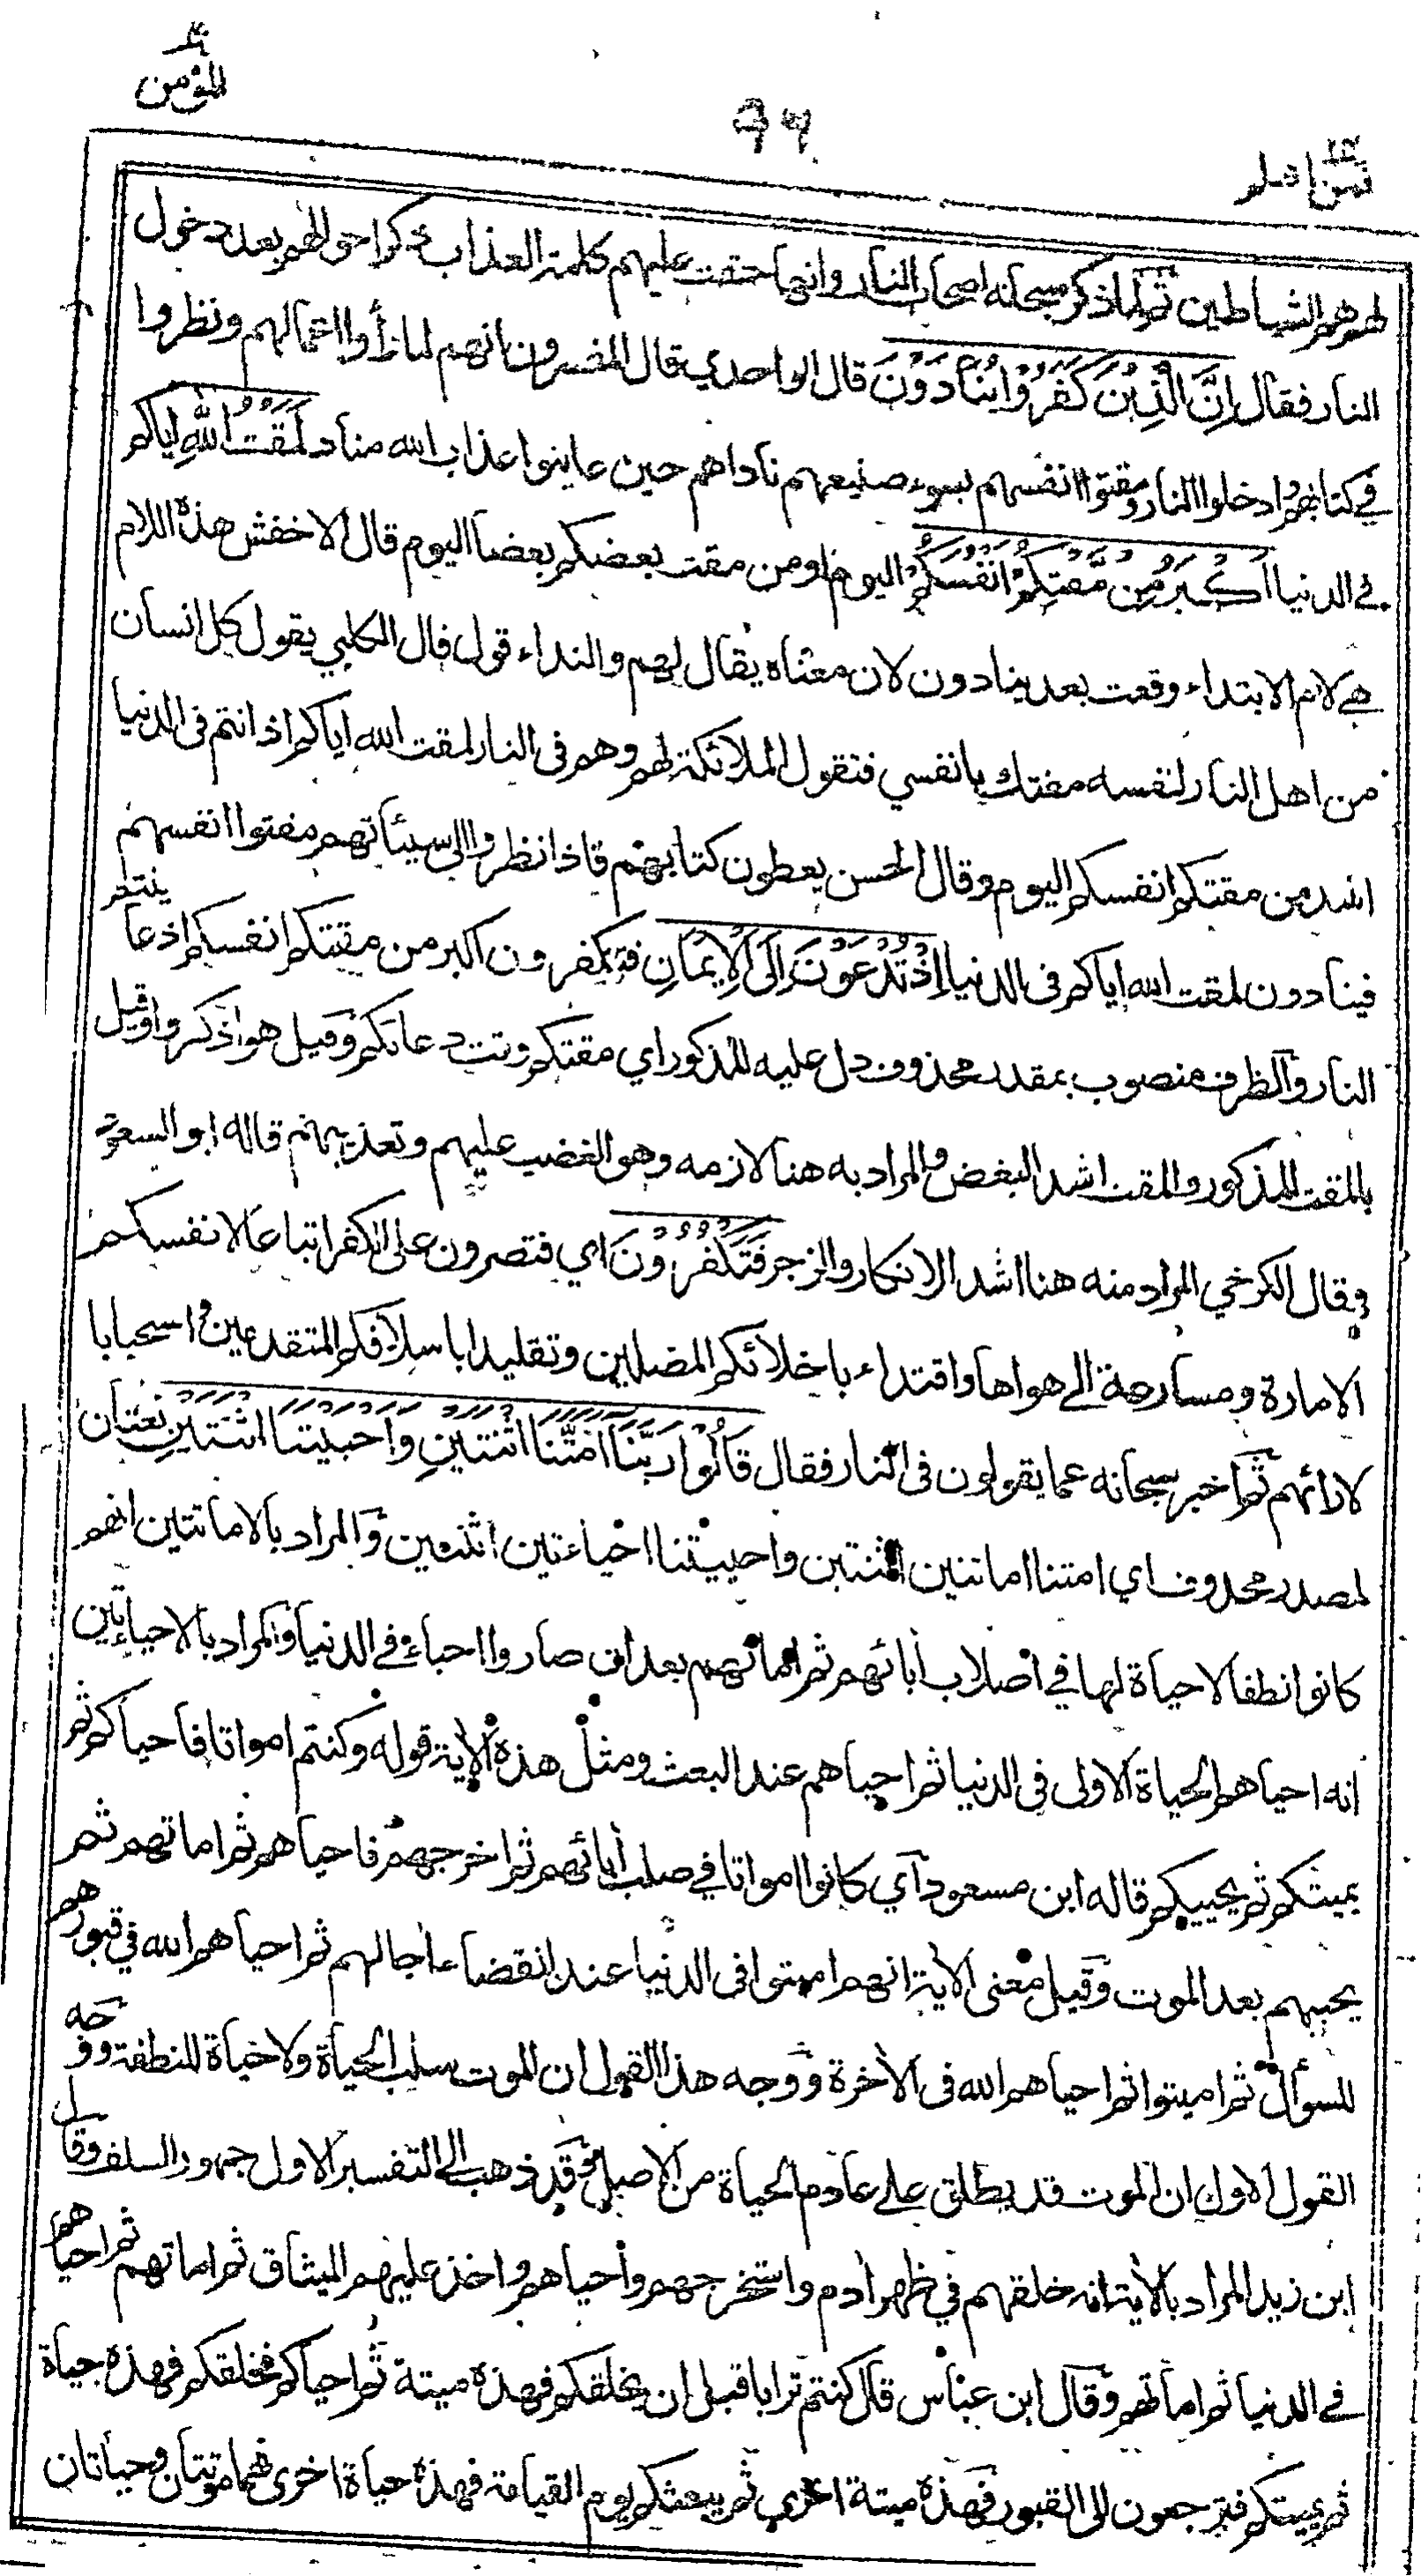 المؤمن
٩٩
فمن اظلم
لهم هم الشياطين ثم لما ذكر سبحانه اصحاب النار وانها حقت عليهم كلمة العذاب ذكر احوالهم بعد دخول
النار فقال اِنَّ الَّذِيْنَ كَفَرُوْا يُنَادَوْنَ قال الواحدي قال المفسرون انهم لما رأوا اعمالهم ونظروا
في كتابهم وادخلوا النار ومقتوا انفسهم بسوء صنيعهم ناداهم حين عاينوا عذاب الله مناد لَمَقْتُ اللّٰهِ اياكم
في الدنيا اَكْبَرُ مِنْ مَّقْتِكُمْ اَنْفُسَكُمْ اليوم او من مقت بعضكم بعضا اليوم قال الاخفش هذه اللام
هي لام الابتداء وقعت بعد ينادون لان معناه يقال لهم والنداء قول قال الكلبي يقول كل انسان
من اهل النار لنفسه مقتك يا نفسي فتقول الملائكة لهم وهم فى النار لمقت الله اياكم اذ انتم فى الدنيا
اشد من مقتكم انفسكم اليوم وقال الحسن يعطون كتابهم فاذا نظروا الى سيئاتهم مقتوا انفسهم
فينادون لمقت الله اياكم فى الدنيا اِذْ تُدْعَوْنَ اِلَى الْاِيْمَانِ فتكفرون اكبر من مقتكم انفسكم اذ عاينتم
النار والظرف منصوب بمقدر محذوف دل عليه المذكور اي مقتكم وقت دعائكم وقيل هو اذكروا وقيل
بالمقت المذكور والمقت اشد البغض والمراد به هنا لازمه وهو الغضب عليهم وتعذيبهم قاله ابو السعود
وقال الكرخي المراد منه هنا اشد الانكار والزجر فَتَكْفُرُوْنَ اي فتصرون على الكفر اتباعا لانفسكم
الامارة ومسارعة الى هواها واقتداء باخلائكم المضلين وتقليدا باسلافكم المتقدمين واستحبابا
لارائهم ثم اخبر سبحانه عما يقولون فى النار فقال قَالُوْا رَبَّنَا اَمَتَّنَا اثْنَتَيْنِ وَاَحْيَيْتَنَا اثْنَتَيْنِ نعتان
لمصدر محذوف اي امتنا اماتتين اثنتين واحييتنا احياءتين اثنتين والمراد بالاماتتين انهم
كانوا نطفا لا حياة لها في اصلاب ابائهم ثم اماتهم بعد ان صاروا احياء في الدنيا والمراد بالاحياءتين
انه احياهم الحياة الاولى فى الدنيا ثم احياهم عند البعث ومثل هذه الاية قوله وكنتم امواتا فاحياكم ثم
يميتكم ثم يحييكم قاله ابن مسعود اي كانوا امواتا في صلب ابائهم ثم اخرجهم فاحياهم ثم اماتهم ثم
يحييهم بعد الموت وقيل معنى الاية انهم اميتوا فى الدنيا عند انقضاء اجالهم ثم احياهم الله في قبورهم
للسؤال ثم اميتوا ثم احياهم الله فى الاخرة ووجه هذا القول ان الموت سلب الحياة ولا حياة للنطفة ووجه
القول الاول ان الموت قد يطلق على عادم الحياة من الاصل وقد ذهب الى التفسير الاول جمهور السلف وقال
ابن زيد المراد بالاية انه خلقهم في ظهر ادم واستخرجهم واحياهم واخذ عليهم الميثاق ثم اماتهم ثم احياهم
في الدنيا ثم اماتهم وقال ابن عباس قال كنتم ترابا قبل ان يخلقكم فهذه ميتة ثم احياكم فخلقكم فهذه حياة
ثم يميتكم فترجعون الى القبور فهذه ميتة اخرى ثم يبعثكم يوم القيامة فهذه حياة اخرى فهما موتتان وحياتان